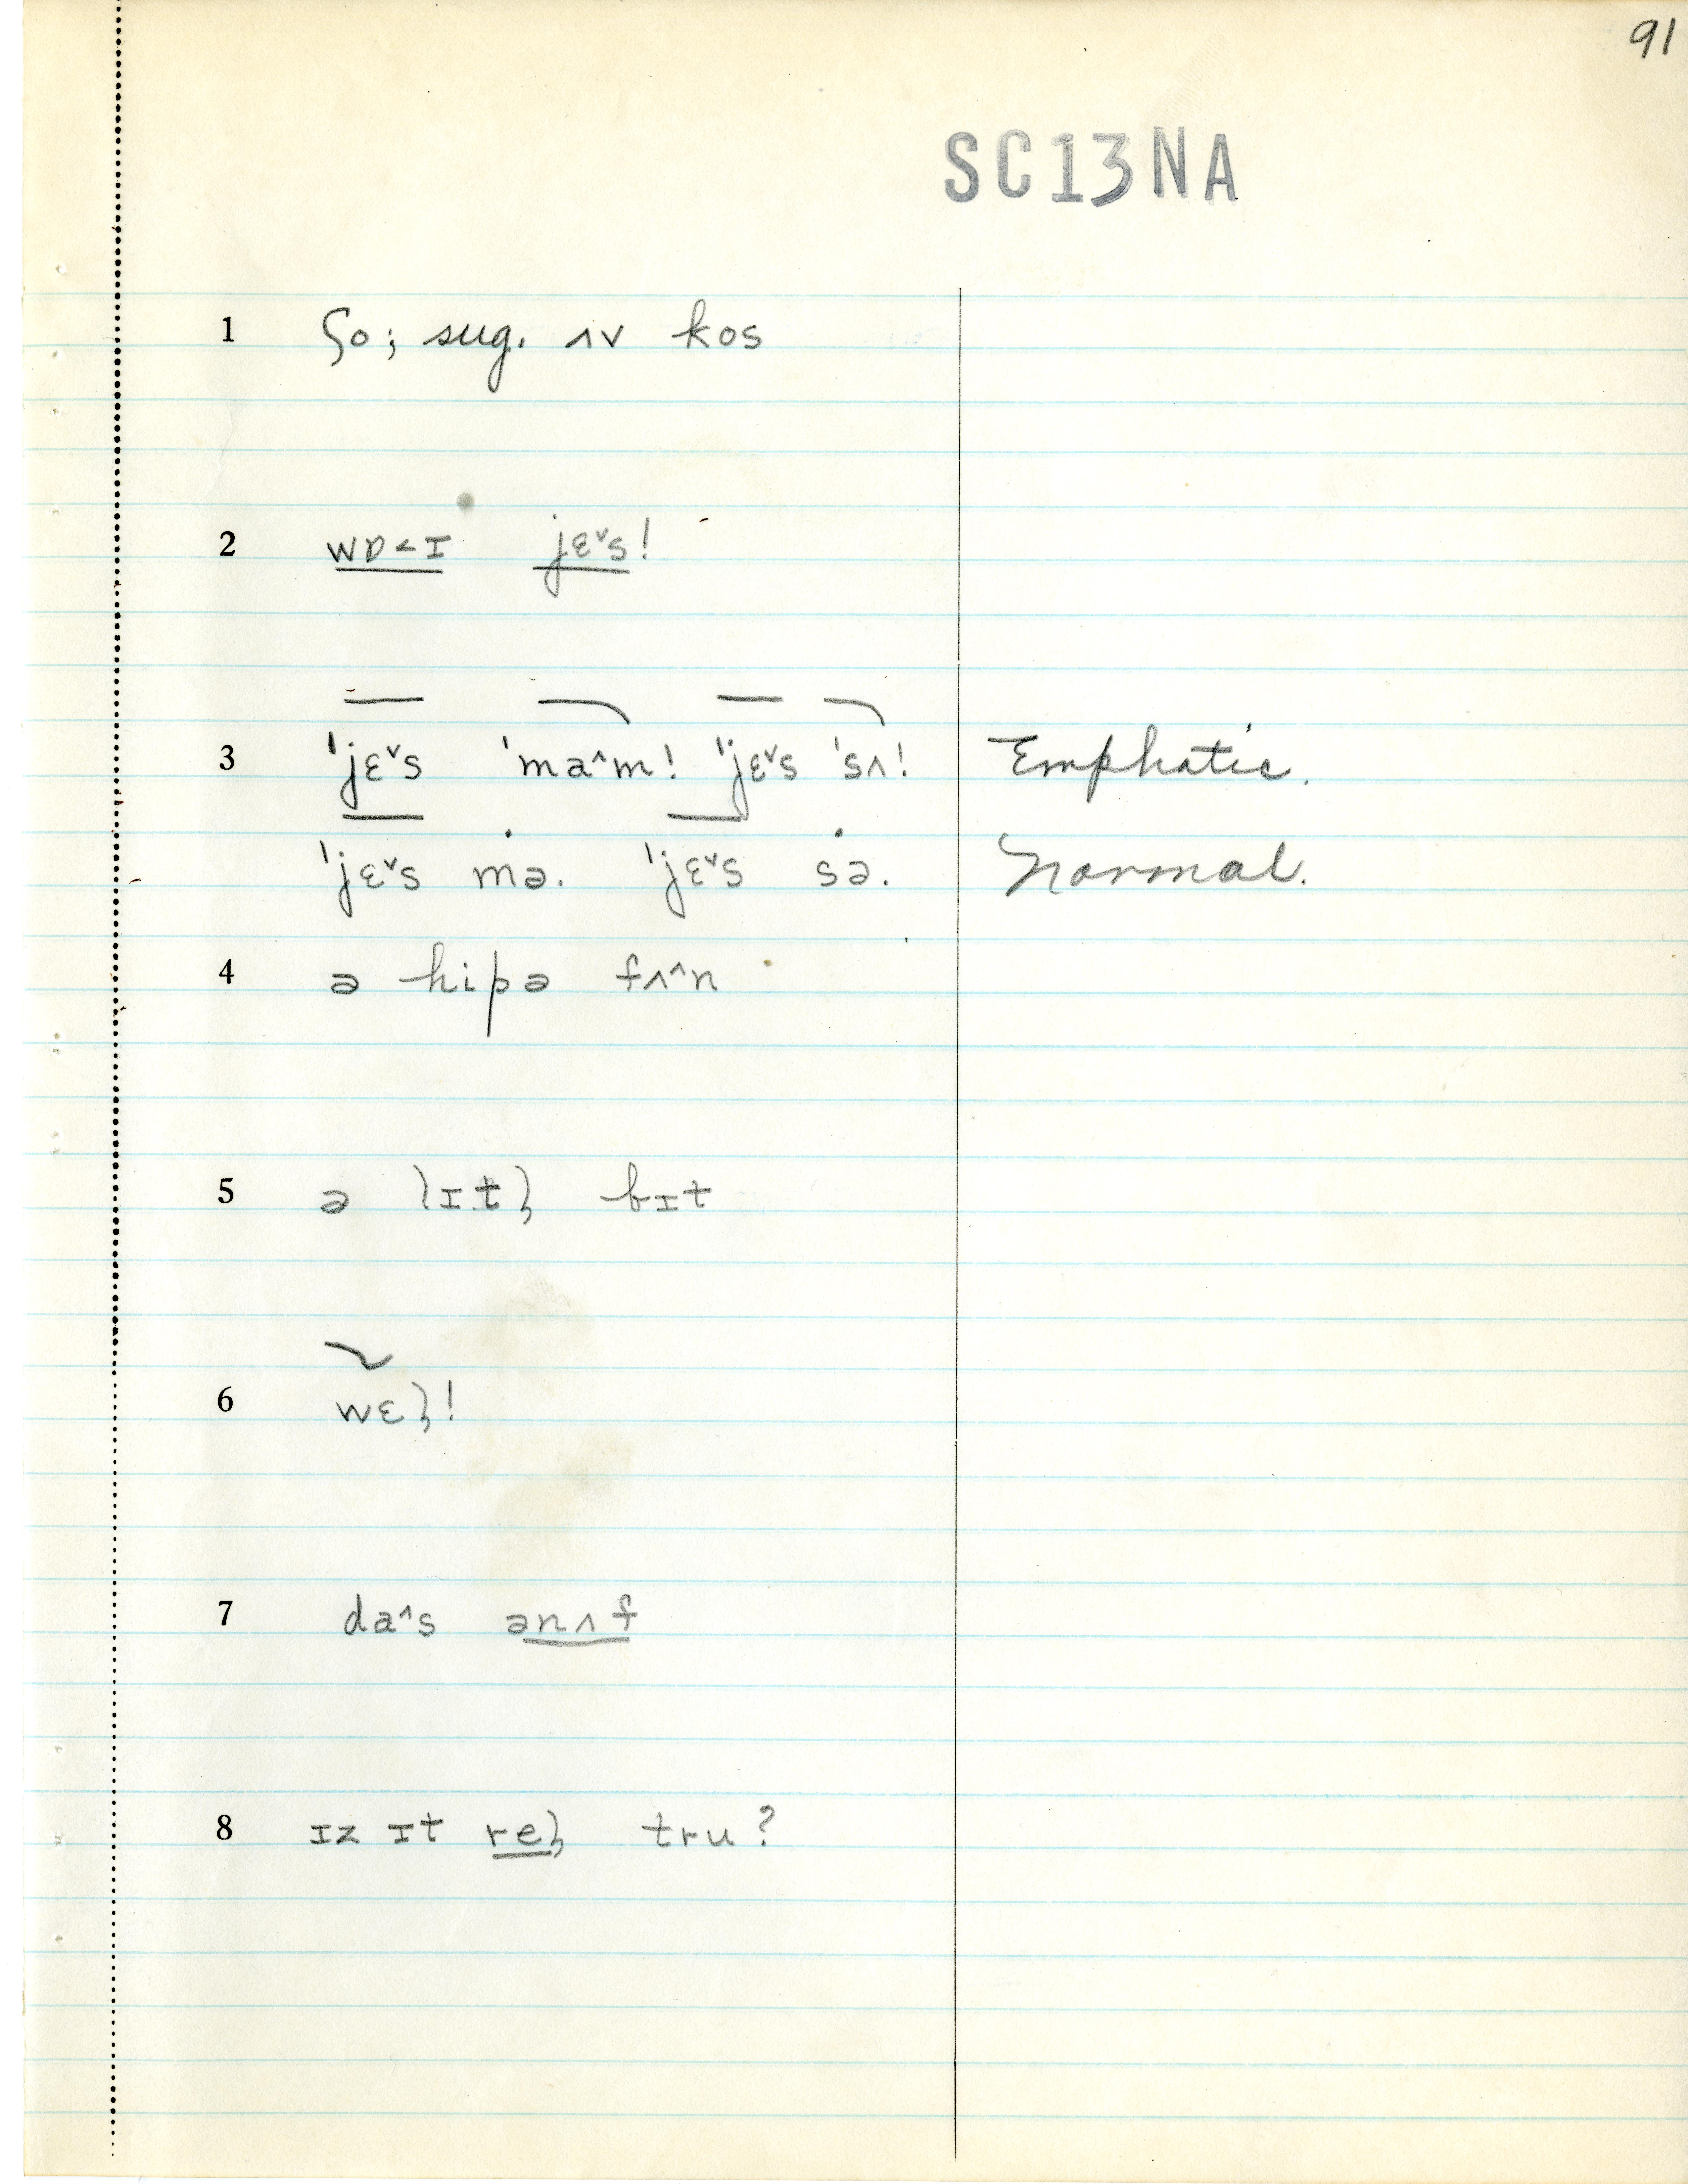 91
SC13NA
1 ʃo; sug. ʌv kos
2 wɒ˂ɪ jɛ˅s!
3 ˈjɛ˅s ˈma˄m! ˈjɛ˅s ˈsʌ! Emphatic.
ˈjɛ˅s mə. ˈjɛ˅s sə. Normal.
4 ə hipə fʌ˄n
5 ə lɪtl̩ bɪt
6 wɛl̩!
7 da˄s ənʌf
8 ɪz ɪt rel̩ tru?